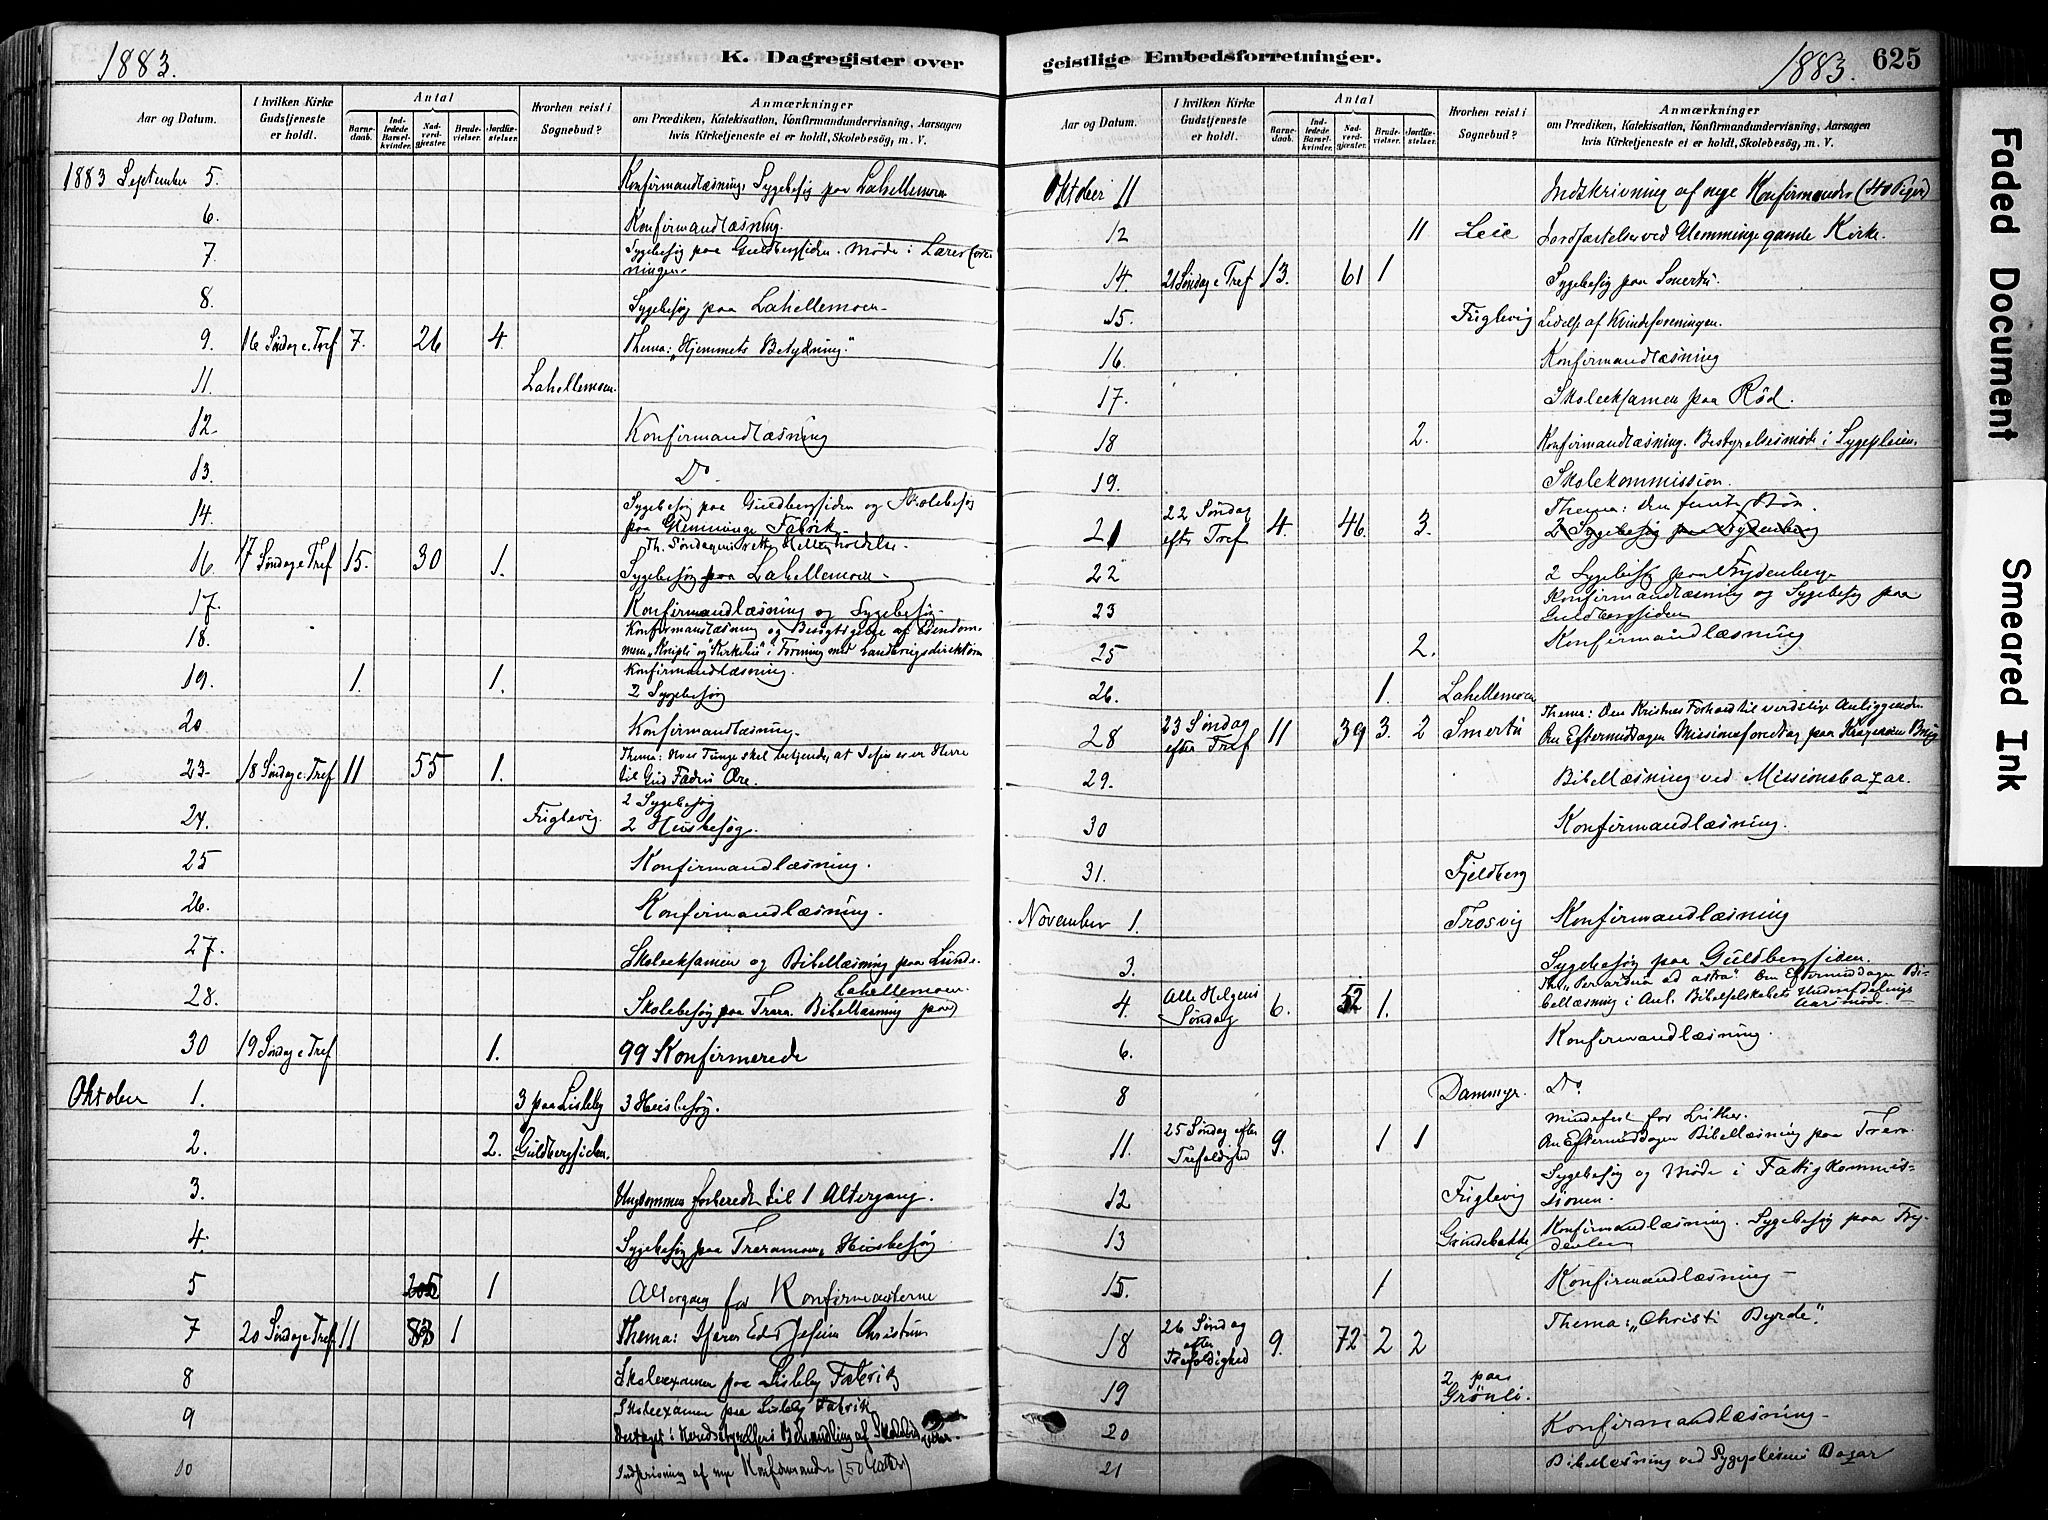 1883.
K. Dagregister over
Aar og Datum.
I hvilken Kirke Gudstjeneste er holdt.
Antal
Barnedaab.
Indledede Barselkvinder.
Nadverdgjester.
Brudevielser.
Jordfæstelser.
Hvorhen reist i Sognebud?
Anmærkninger
om Prædiken, Katekisation, Konfirmandundervisning, Aarsagen
hvis Kirketjeneste ei er holdt, Skolebesøg, m. V.
1883 September 5. Konfirmandlæsning. Sygebesøg paa Lahellemoen
6. Konfirmandlæsning.
7. Sygebesøg paa Guldbergsiden. Møde i Lærerfore-
ningen.
8. Sygebesøg paa Lahellemoen
9. 16 Søndag e. Tref 7. 26 4. Thema: "Hjemmets Betydning."
11. Lahellemoen.
12. Konfirmandlæsning
13. Do
14. Sygebesøg paa Guldbergsiden og Skolebesøg
paa Glemminge Fabrik
16. 17 Søndag e Tref 15. 30 1. Th. Søndagens rette Helligholdelse.
Sygebesøg paa Lahellemoen
17. Konfirmandlæsning og Sygebesøg
18. Konfirmandlæsning og Besigtigelse af Eiendom-
19. 1. 1. Konfirmandlæsning.
2 Sygebesøg
20 Konfirmandlæsning.
23. 18 Søndag e. Tref 11 55 1. Thema: Hver Tunge skal bekjende, at Jesus er en Herre
til Gud Faders Ære.
24. Fuglevig. 2 Sygebesøg
2 Huusbesøg.
25 Konfirmandlæsning.
26. Konfirmandlæsning.
27. Skoleeksamen og Bibellæsning paa Lunde.
28. Skolebesøg paa Trara. Bibellæsning paa Lahellemoen.
30 19 Søndag e Tref 1. 99 Konfirmerede
Oktober 1. 3 paa Lisleby 3 Huusbesøg.
2. 2. Guldbergsiden.
3. Ungdommen forberedt til 1 Altergang.
4. Sygebesøg paa Traramoen, Huusbesøg
5 205 1 Altergang for Konfirmanterne
7 20 Søndag e Tref 11 83 1 Thema: Ifører Eder Jesum Christum
8 Skoleexamen paa Lisleby Fabrik
9 Skoleexamen paa Lisleby Fabrik
Deltaget i Herredsstyrelsens Behandling af
10 Indskrivning af nye Konfirmander (50 Gutter)
geistlige Embedsforretninger.
1883.
625
Aar og Datum.
I hvilken Kirke Gudstjeneste er holdt.
Antal
Barnedaab.
Indledede Barselkvinder.
Nadverdgjester.
Brudevielser.
Jordfæstelser.
Hvorhen reist i Sognebud?
Anmærkninger
om Prædiken, Katekisation, Konfirmandundervisning, Aarsagen
hvis Kirketjeneste ei er holdt, Skolebesøg, m. V.
Oktober 11 Indskrivning af nye Konfirmander (40 Piger)
12 11 Leie Jordfæstelser ved Glemminge gamle Kirke.
14. 21 Søndag e Tref 13. 61 1 Sygebesøg paa Smertu.
15. Fuglevig Ledelse af Kvindeforeningen.
16. Konfirmandlæsning
17. Skoleeksamen paa Rød.
18 2. Konfirmandlæsning. Bestyrelsesmøde i Sygepleien.
19. Skolekommission.
21 22 Søndag efter Tref 4. 46 3. Thema: den femte Bøn.
2 Sygebesøg paa Frydenberg
22 2 Sygebesøg paa Frydenberg
23 Konfirmandlæsning og Sygebesøg paa
Guldbergsiden
25 2. Konfirmandlæsning
26. 1. Lahellemoen
28 23 Søndag efter Tref 11 39 3. 2 Smertu Thema: Den Kristnes Forhold til verdslige Anliggender
Om Eftermiddagen Missionsforedrag paa
29. Bibellæsning ved Missionsbazar.
30 Konfirmandlæsning.
31. Fjeldberg
November 1. Trosvig Konfirmandlæsning
3. Sygebesøg paa Guldbergsiden.
4. Alle Helgens Søndag 6. 52 1. Th. "Per ardua ad astra". Om Eftermiddagen Bi-
bellæsning i Anl. Bibelselskabets Underafdelings
Aarsmøde.
6. Konfirmandlæsning.
8 Dammyr. Do
11. 25 Søndag efter Trefoldighed 9. 1 1 Mindefest for Luther.
Om Eftermiddagen Bibellæsning paa Trara.
12 Fuglevig Sygebesøg og Møde i Fattigkommis-
sionen.
13 Konfirmandlæsning. Sygebesøg paa Fry-
15. 1 Konfirmandlæsning
18 26 Søndag efter Trefoldighed 9. 72 2 2 Thema: "Christi Byrde".
19 2 paa Grønli.
20 Konfirmandlæsning
21 Bibellæsning ved Sygepleiens Bazar
Faded Document
Smeared Ink